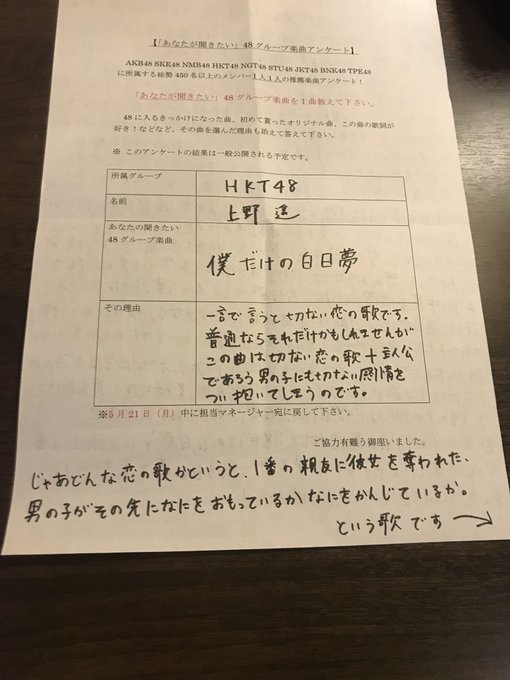 【「あなたが聞きたい」48グループ楽曲アンケート】
AKB48 SKE48 NMB48 HKT48 NGT48 STU48 JKT48 BNK48 TPE48
に所属する総勢 450 名以上のメンバー1人1人の推薦楽曲アンケート！
「あなたが聞きたい」48 グループ楽曲を1曲教えて下さい。
48 に入るきっかけになった曲、初めて貰ったオリジナル曲、この曲の歌詞が
好き！などなど、その曲を選んだ理由も添えて答えて下さい。
※ このアンケートの結果は一般公開される予定です。
所属グループ
HKT48
名前
上野 遥
あなたの聞きたい
48 グループ楽曲
僕だけの白日夢
その理由
一言で言うと切ない恋の歌です。
普通ならそれだけかもしれませんが
この曲は切ない恋の歌+主人公
であろう男の子にも切ない感情を
つい抱いてしまうのです。
※5 月 21 日（月）中に担当マネージャー宛に戻して下さい。
ご協力有難う御座いました。
じゃあどんな恋の歌かというと、1番の親友に彼女を奪われた、
男の子がその先になにをおもっているかなにをかんじているか。
という歌です→